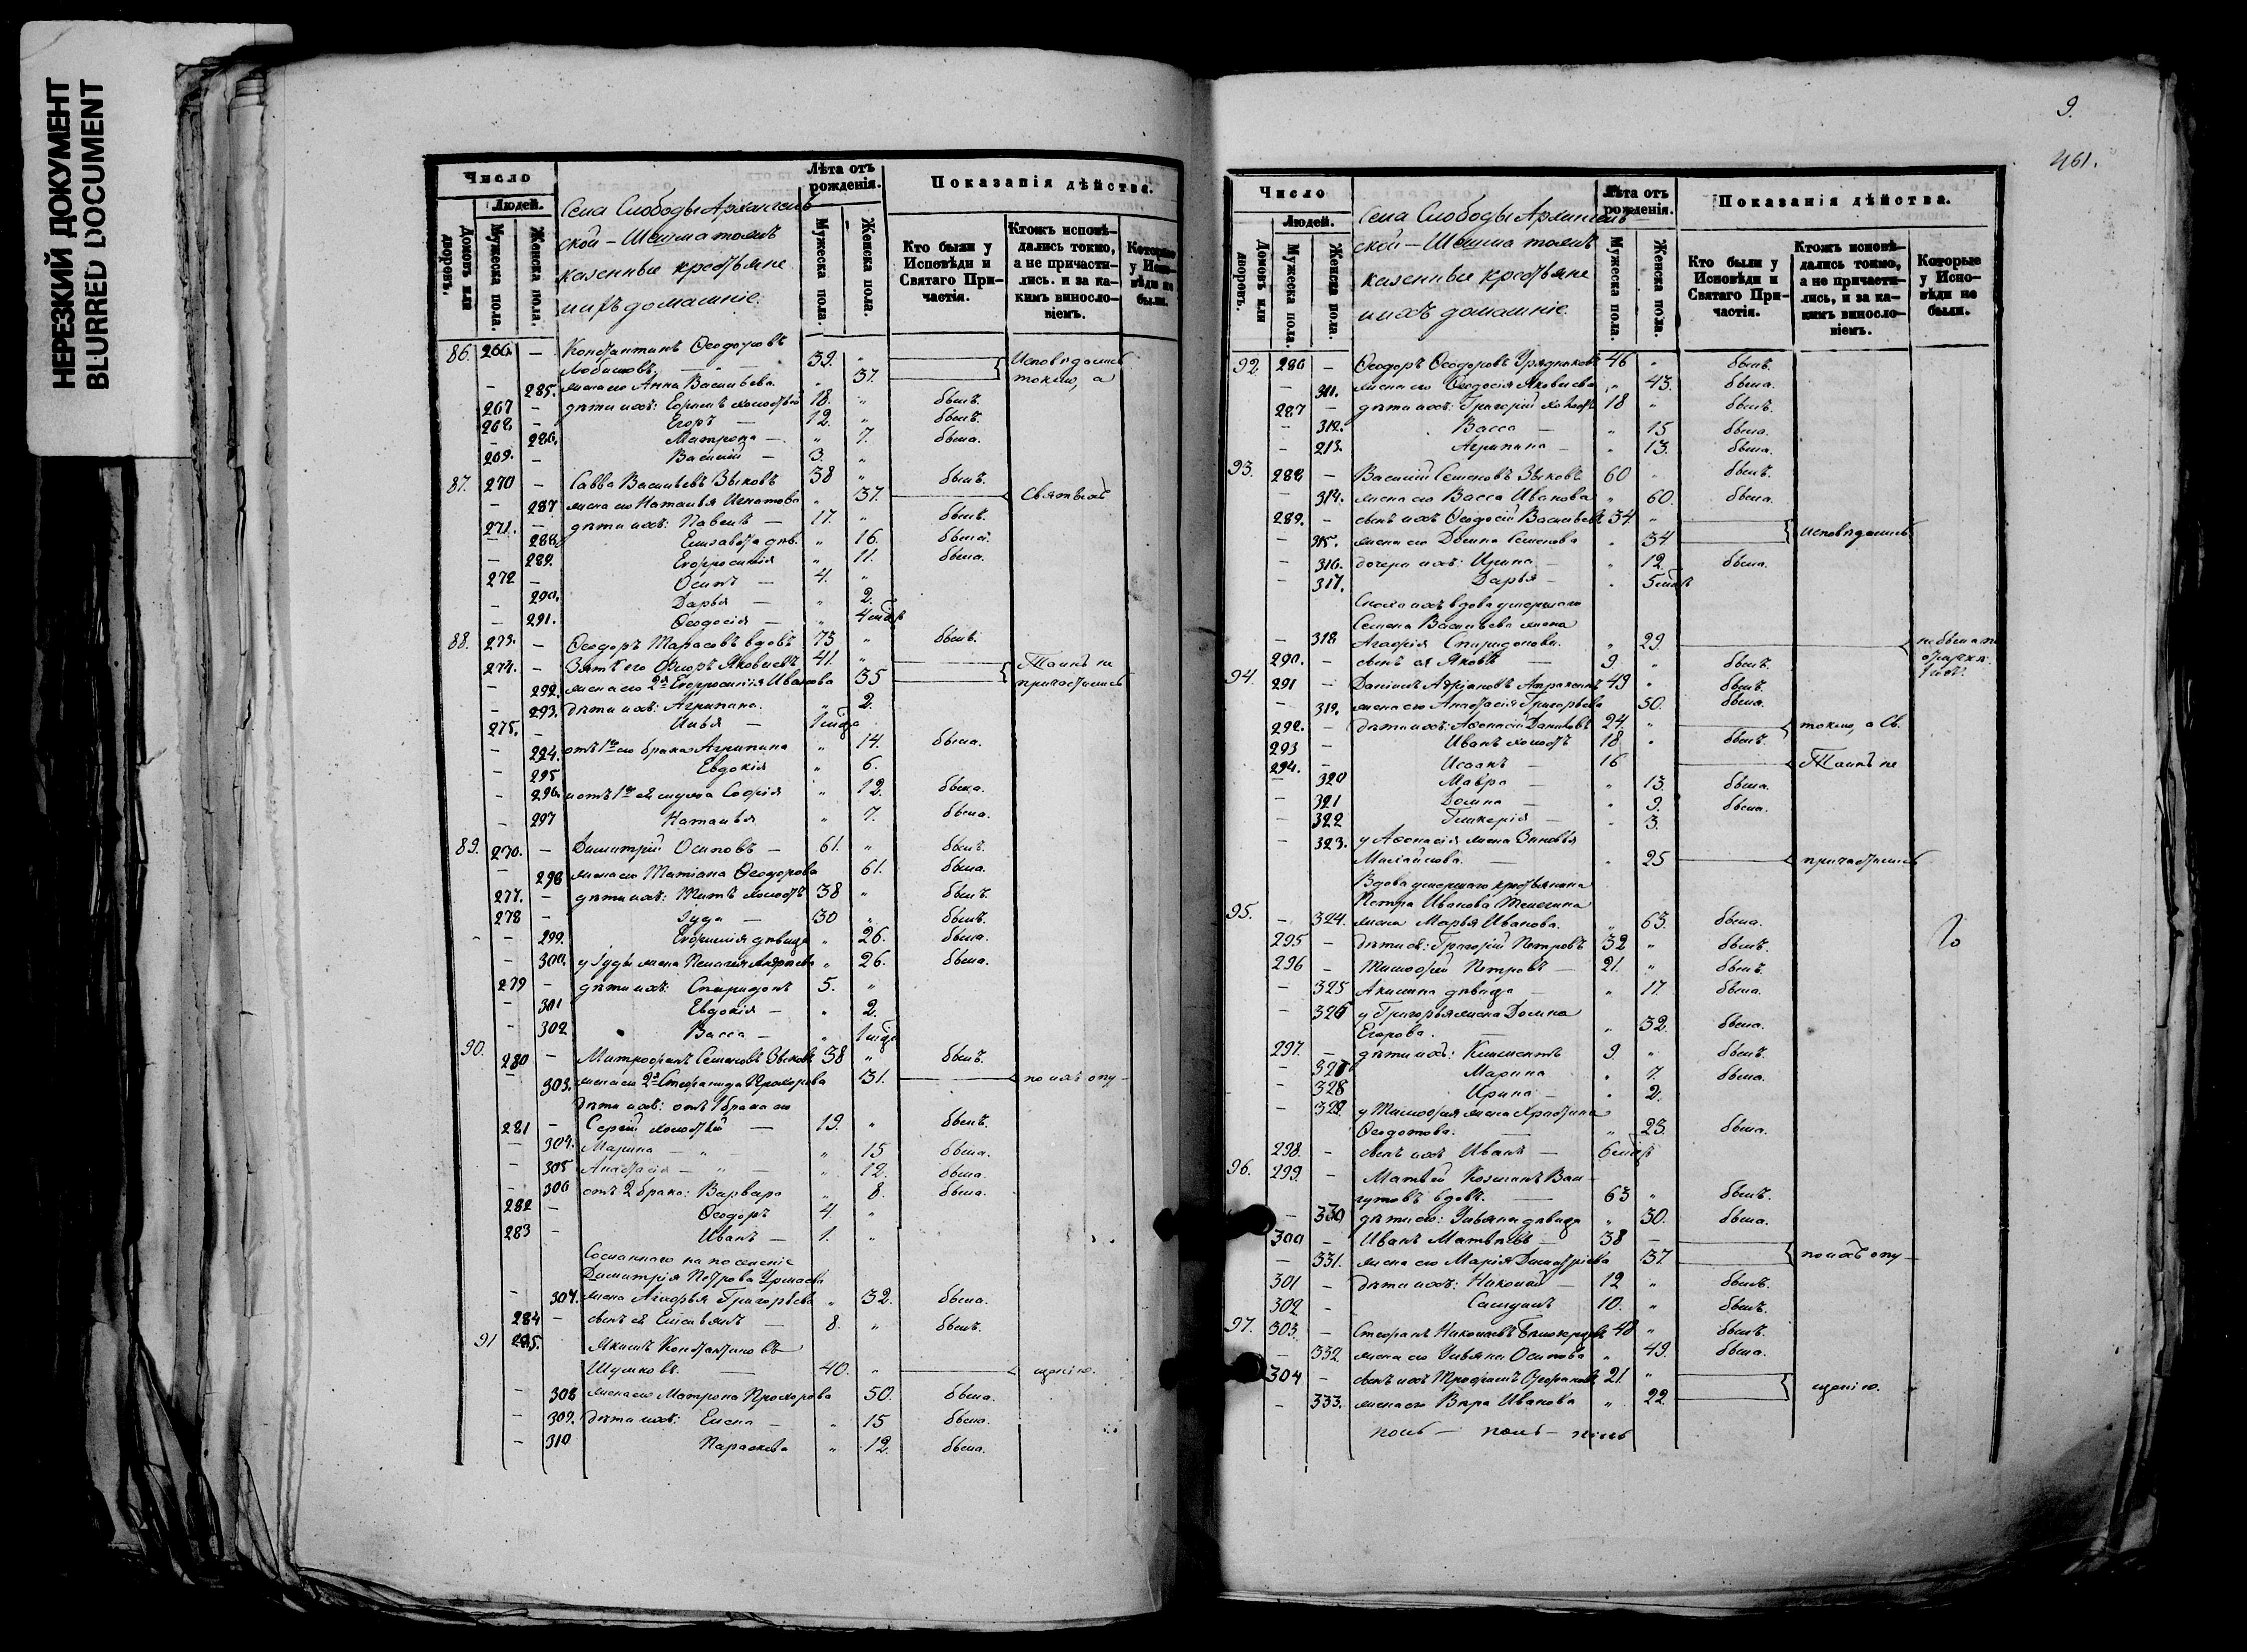 НЕРЕЗКИЙ ДОКУМЕНТ
BLURRED DOCUMENT
Число
Людей.
Домовъ или дворовъ.
Мужеска пола.
Женска пола.
Села Слободы Архангель
ской – Шешма тожъ
казенные крестьяне
ихъ домашніе.
Лѣта отъ рожденія.
Мужеска пола.
Женска пола.
Показанія дѣйства.
Кто были у Исповѣди и Святаго При-частія.
Ктожъ исповѣ-дались токмо, а не причасти-лись. и за ка-кимъ винословіемъ.
Которые у Испо-вѣди не были.
86. 266. – Константинъ Ѳеодоровъ
Любимовъ 39. " Исповѣдались
– 285. жена его Анна Васильева " 37. токмо, а
267 – дѣти ихъ: Ефремъ холостый 18. " былъ.
268 – Егоръ – 12. " былъ.
– 286. Матрона – " 7. была.
269. – Василій – 3. "
87. 270 – Савва Васильевъ Зыковъ 38 " былъ.
– 287 жена его Наталья Игнатова " 37. Святыхъ
271. – дѣти ихъ: Павелъ – 17. " былъ.
– 288. Елизавета дѣв. " 16. была.
– 289. Евфросинія " 11. была.
272 – Осипъ – 4. "
– 290. Дарья – " 2.
– 291. Ѳеодосія – " 4 мѣс
88. 273. – Ѳеодоръ Тарасовъ вдовъ 73 " былъ.
274. – Зять его Ѳеодоръ Яковлевъ 41. " Таинъ не
– 292. жена его 2я Евфросинія Иванова 35 причастились
– 293. дѣти ихъ: Агрипина. " 2.
275. – Илья – 1 мѣс
– 294. отъ 1го его брака Агрипина " 14. была.
– 295 Евдокія " 6.
– 296. и отъ 1го ей мужа Софія " 12. была.
– 297 Наталья " 7. была.
89. 276. – Димитрій Осиповъ – 61. " былъ.
– 298 жена его Татіана Ѳеодорова 61. была.
277. – дѣти ихъ: Титъ холостъ 38 " былъ.
278 – Іуда – 30 " былъ.
– 299. Евфимія дѣвица " 26. была.
– 300. у Іуды жена Пелагея Андреева " 26. была.
279 – дѣти ихъ: Спиридонъ 5. "
– 301 Евдокія – " 2.
– 302 Васса – " 1 мѣс
90. 280 – Митрофанъ Семеновъ Зыковъ 38 " былъ.
– 303. жена его 2я Стефанида Прохорова 31. по ихъ опу–
дѣти ихъ: отъ 1 брака его
281 – Сергій холостый – 19. " былъ.
– 304. Марина – " – " 15 была.
– 305 Анастасія – " – " 12. была.
– 306 отъ 2 брака: Варвара " 8. была.
282 – Ѳеодоръ 4 "
283 – Иванъ – 1. "
Сосланнаго на поселеніе
Димитрія Петрова
– 307. жена Агафья Григорьева " 32. была.
284 – сынъ ей – 8. " былъ.
91 285. Якимъ Константиновъ
40. " щенію.
– 308 жена его Матрона Прохорова 50. была.
– 309. дѣти ихъ: Елена – " 15 была.
– 310 Параскева " 12. была.
9.
461.
Число
Людей.
Домовъ или дворовъ.
Мужеска пола.
Женска пола.
Села Слободы Архангель
ской – Шешма тожъ
казенные крестьяне
и ихъ домашніе.
Лѣта отъ рожденія.
Мужеска пола.
Женска пола.
Показанія дѣйства.
Кто были у Исповѣди и Святаго При-частія.
Ктожъ исповѣ-дались токмо, а не причасти-лись, и за ка-кимъ винословіемъ.
Которые у Испо-вѣди не были.
92. 286 – Ѳеодоръ Ѳеодоровъ Урядниковъ 46 " былъ.
– 311. жена его Ѳеодосія Яковлева " 43. была.
287 – дѣти ихъ: Григорій холостъ 18 " былъ.
– 312. Васса – " 15 была.
– 213. Агрипина – " 13. была.
93. 288 – Василій Семеновъ Зыковъ 60 " былъ.
– 314. жена его Васса Иванова " 60. была.
289. – сынъ ихъ Ѳеодосій Васильевъ 34. " исповѣдались
– 315. жена его Домна Семенова " 34
– 316. дочери ихъ: Ирина – " 12 была.
– 317. Дарья – " 5 мѣс
Сноха ихъ вдова умершаго
Семена Васильева жена
– 318 Агафія Спиридонова. " 29. не была по
290. – сынъ ея Яковъ – 9. " былъ.
94. 291 – Даніилъ 49 " былъ.
– 319. жена его Анастасія Григорьева 50. была.
292. – дѣти ихъ: Аѳонасій Даниловъ 24. " токмо, а Св.
293 – Иванъ холостъ 18 " былъ.
294. – Исаакъ – 16 Таинъ не
– 320 Мавра – " 13. была.
– 321 Домна – " 9. была.
– 322 Гликерія – " 3.
– 323. у Аѳонасія жена Зиновья
Михайлова. – " 25 причастились
Вдова умершаго крестьянина
Петра Иванова
95. – 324. жена Марья Иванова. " 63. была.
295 – дѣти ей: Григорій Петровъ 32 " былъ.
296 – Тимофей Петровъ – 21. " былъ.
– 325 Акилина дѣвица – " 17. была.
– 326 у Григорья жена Домна
Егорова. – " 32. была.
297. – дѣти ихъ: Климентъ 9. " былъ.
– 327 Марина " 7. была.
– 328 Ирина – " 2.
– 329 у Тимофея жена Христина
Ѳедотова. – " 23. была.
298. – сынъ ихъ Иванъ – 6 мѣс
96. 299. – Матвей Козминъ
вдовъ. – 63 " былъ.
– 330 дѣти его: Ульяна дѣвица " 30. была.
300 – Иванъ Матвѣевъ – 38 –
– 331. жена его Марія Димитріева 37. по ихъ опу–
301 – дѣти ихъ: Николай – 12 " былъ.
302 – Самуилъ 10. " былъ.
97. 303. – Стефанъ Николаевъ 48 " былъ.
– 332. жена его Ульяна Осипова " 49. была.
304 – сынъ ихъ Трофимъ Стефановъ 21. "
– 333. жена его Вѣра Иванова " 22. щенію.